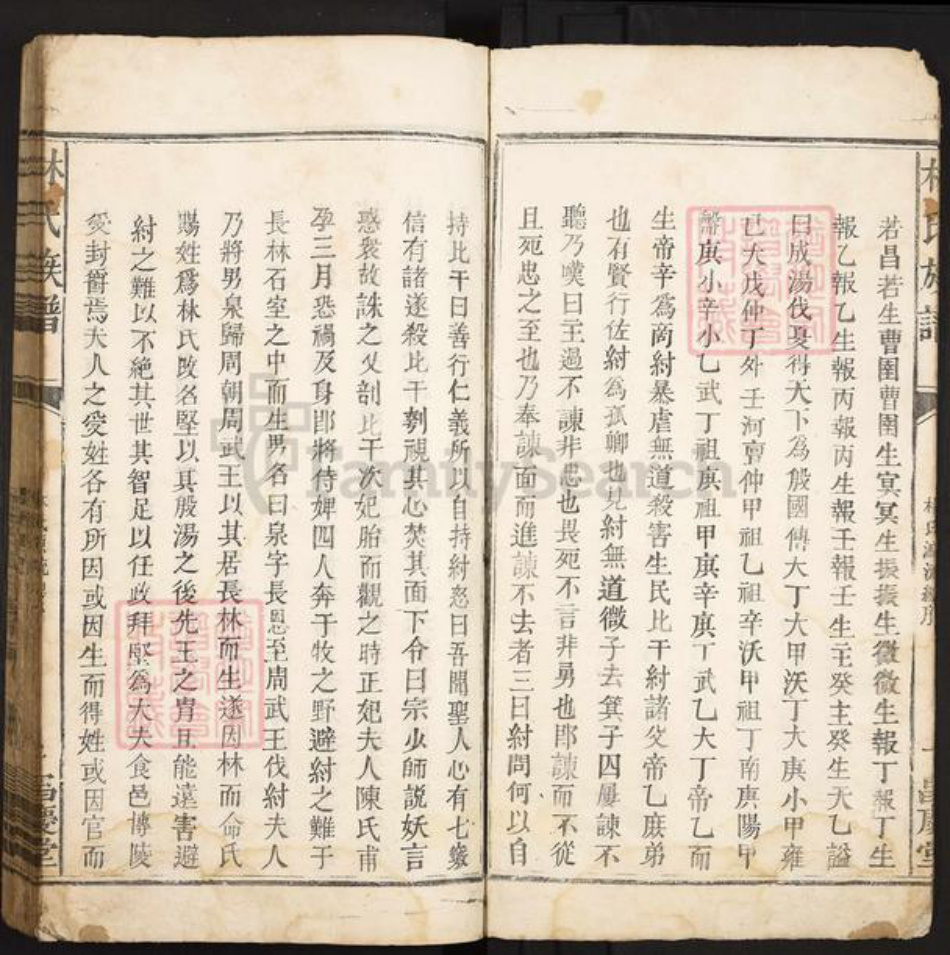 若昌若生曹圉曹圉生冥冥生振振生微微生報丁報丁生
報乙報乙生報丙報丙生報壬報壬生主癸主癸生天乙謚
曰成湯伐夏得天下為殷國傳大丁大甲沃丁大庚小甲雍
己大戊仲丁外壬河亶仲甲祖乙祖辛沃甲祖丁南庚陽甲
盤庚小辛小乙武丁祖庚祖甲庚辛庚丁武乙大丁帝乙而
生帝辛爲商紂暴虐無道殺害生民比干紂諸父帝乙庶弟
也有賢行佐紂爲孤卿也見紂無道微子去箕子囚屢諫不
聽乃嘆曰主過不諫非忠也畏死不言非勇也即諫而不從
且死忠之至也乃奉諫面而進諫不去者三日紂問何以自
持比干曰善行仁義所以自持紂怒曰吾聞聖人心有七竅
信有諸遂殺比干刳視其心焚其面下令曰宗少師説妖言
惑衆故誅之又剖比干次妃胎而觀之時正妃夫人陳氏甫
孕三月恐禍及身即將侍婢四人奔于牧之野避紂之難于
長林石室之中而生男名曰泉字長恩至周武王伐紂夫人
乃將男泉歸周朝周武王以其居長林而生遂因林而命氏
賜姓爲林氏改名堅以其殷湯之後先王之胄且能遠害避
紂之難以不絶其世其智足以任政拜堅爲大夫食邑博陵
受封爵焉夫人之受姓各有所因或因生而得姓或因官而
林氏族譜
昌慶堂
FamilySearch